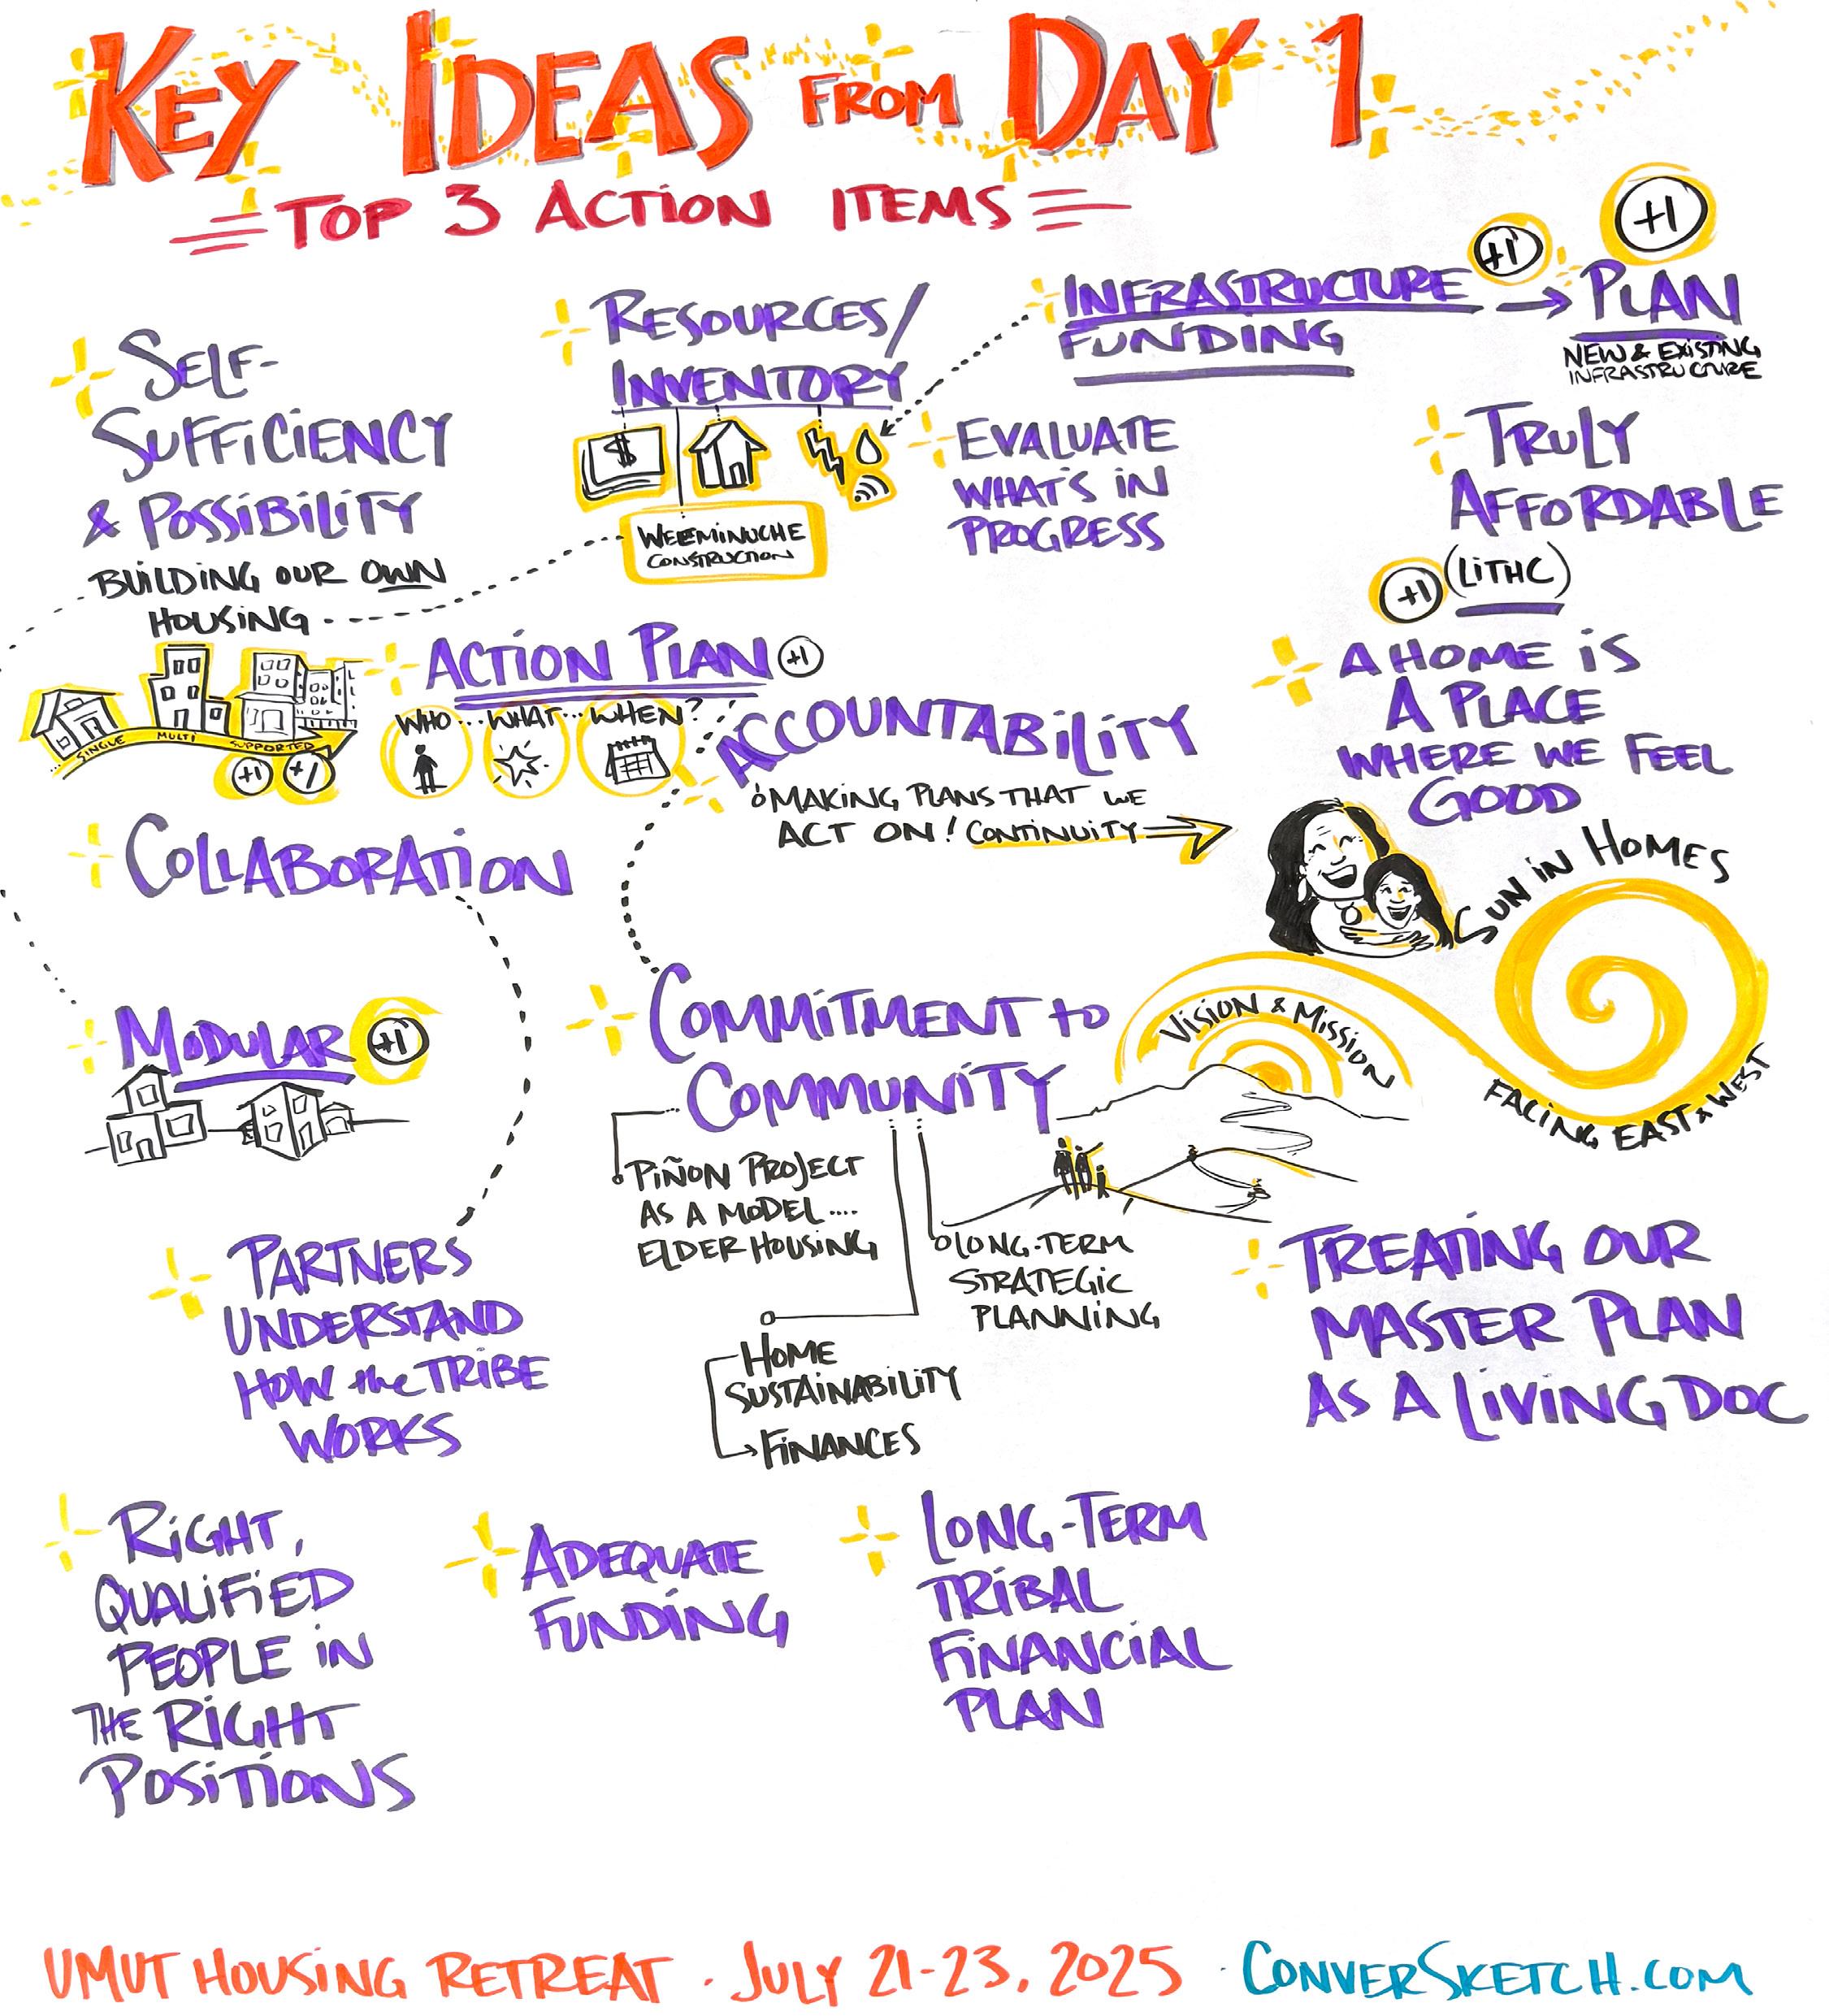 KEY IDEAS FROM DAY 1
TOP 3 ACTION ITEMS
SELF-
SUFFICIENCY
& POSSIBILITY
BUILDING OUR OWN
HOUSING
SINGLE
MULTI
SUPPORTED
+1
+1
RESOURCES/
INVENTORY
$
WEEMINUCHE
CONSTRUCTION
INFRASTRUCTURE
FUNDING
+1
+1
PLAN
NEW & EXISTING
INFRASTRUCTURE
EVALUATE
WHAT'S IN
PROGRESS
TRULY
AFFORDABLE
+1
(LITHC)
ACTION PLAN +1
WHO... WHAT... WHEN?
ACCOUNTABILITY
MAKING PLANS THAT WE
ACT ON! CONTINUITY
A HOME IS
A PLACE
WHERE WE FEEL
GOOD
SUN IN HOMES
FACING EAST & WEST
COLLABORATION
MODULAR +1
COMMITMENT TO
COMMUNITY
VISION & MISSION
PIÑON PROJECT
AS A MODEL....
ELDER HOUSING
LONG-TERM
STRATEGIC
PLANNING
HOME
SUSTAINABILITY
FINANCES
PARTNERS
UNDERSTAND
HOW the TRIBE
WORKS
TREATING OUR
MASTER PLAN
AS A LIVING DOC
RIGHT,
QUALIFIED
PEOPLE IN
THE RIGHT
POSITIONS
ADEQUATE
FUNDING
LONG-TERM
TRIBAL
FINANCIAL
PLAN
UMUT HOUSING RETREAT · JULY 21-23, 2025 · CONVERSKETCH.COM